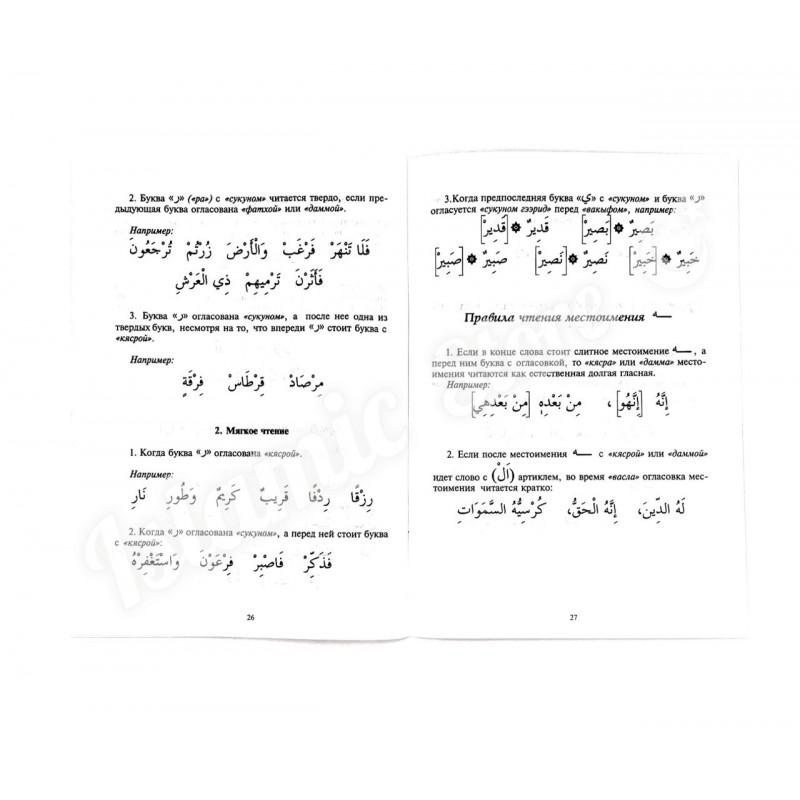 2. Буква «ر» («ра») с «сукуном» читается твердо, если пре-
дыдующая буква огласована «фатхой» или «даммой».
Например:
فَلَا تَنْهَرْ فَرْغَبْ وَالْأَرْضَ زُرْتُمْ تُرْجَعُونَ
فَأَثَرْنَ تَرْمِيهِمْ ذِي الْعَرْشِ
3. Буква «ر» огласована «сукуном», а после нее одна из
твердых букв, несмотря на то, что впереди «ر» стоит буква с
«кясрой».
Например:
مِرْصَادْ قِرْطَاسْ فِرْقَةٍ
2. Мягкое чтение
1. Когда буква «ر» огласована «кясрой».
Например:
رِزْقًا رِدْفًا قَرِيبٌ كَرِيمٌ وَطُورِ نَارِ
2. Когда «ر» огласована «сукуном», а перед ней стоит буква
с «кясрой».
فَذَكِّرْ فَاصْبِرْ فِرْعَوْنَ وَاسْتَغْفِرْهُ
26
3.Когда предпоследняя буква «ي» с «сукуном» и буква «ر»
огласуется «сукуном гээрид» перед «вакыфом», например:
بَصِيرٌ * [بَصِيرْ] قَدِيرٌ * [قَدِيرْ]
خَبِيرٌ * [خَبِيرْ] نَصِيرٌ * [نَصِيرْ] صَبِيرٌ * [صَبِيرْ]
Правила чтения местоимения ـه
1. Если в конце слова стоит слитное местоимение ـه, а
перед ним буква с огласовкой, то «кясра» или «дамма» место-
имения читаются как естественная долгая гласная.
Например:
إِنَّهُ [إِنَّهُو] ، مِنْ بَعْدِهِ [مِنْ بَعْدِهِي]
2. Если после местоимения ـه с «кясрой» или «даммой»
идет слово с (اَلْ) артиклем, во время «васла» огласовка мес-
тоимения читается кратко:
لَهُ الدِّينَ، إِنَّهُ الْحَقُّ، كُرْسِيُّهُ السَّمَوَاتِ
27
Islamic Store